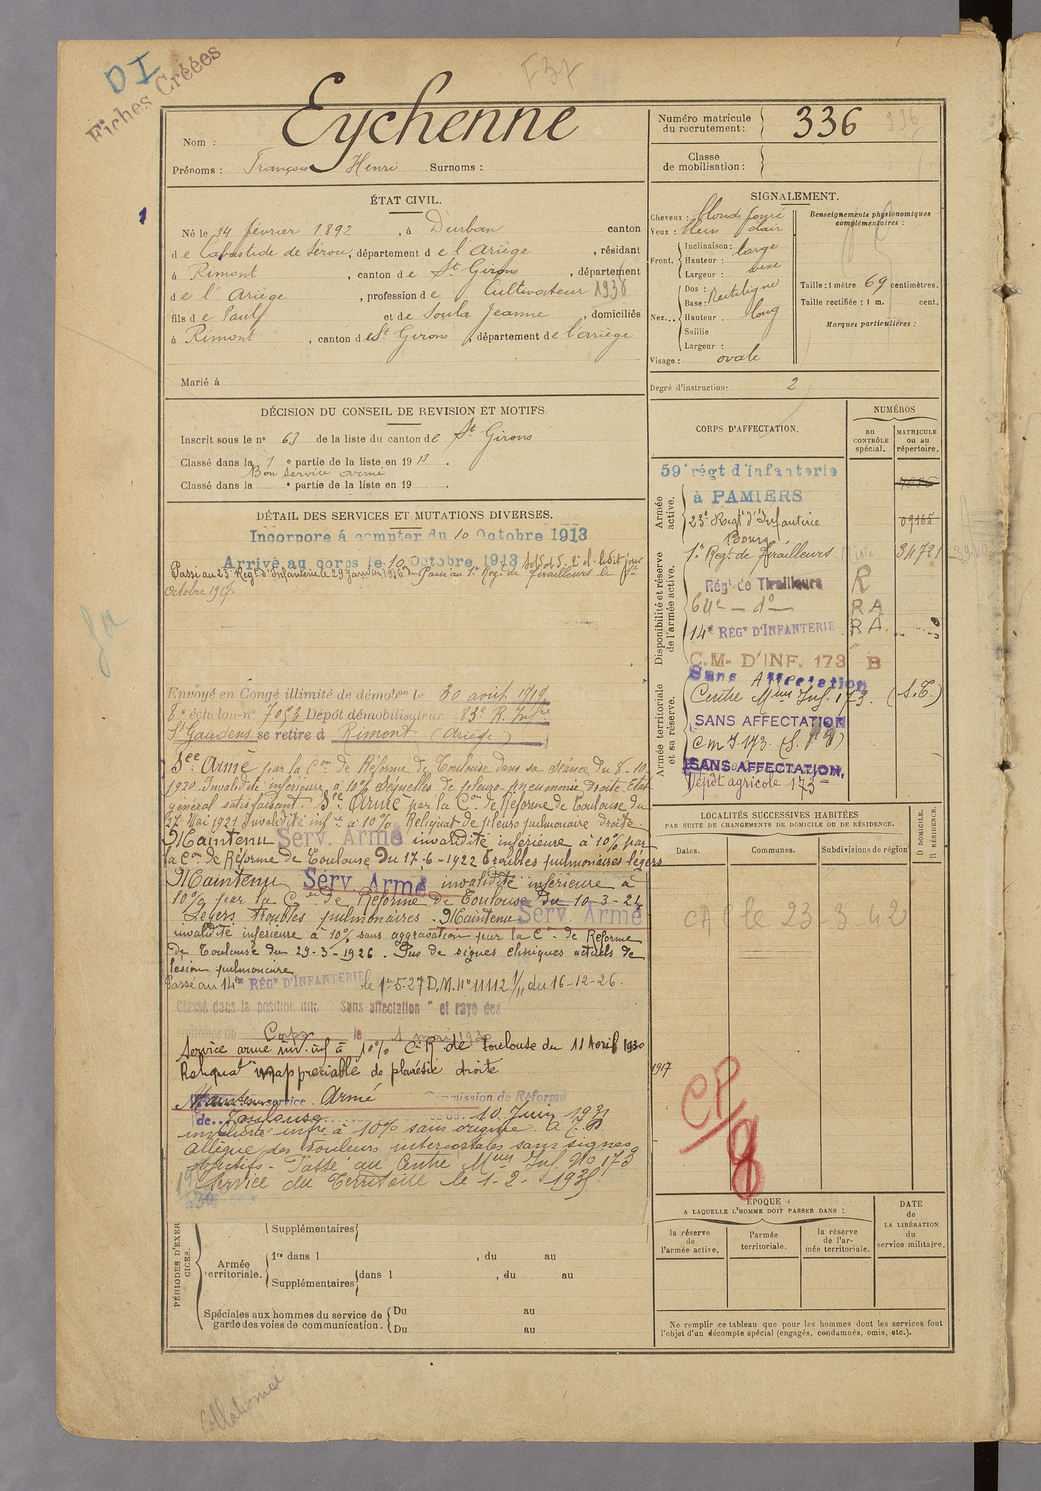 DI
Fiches Créées
Nom : Eychenne
Prénoms : François Henri Surnoms :
Numéro matricule du recrutement : 336
Classe de mobilisation :
ÉTAT CIVIL.
Né le 14 février 1892, à Durban canton
de Labastide de Sérou, département de l'Ariège, résidant
à Rimont, canton de St Girons, département
de l'Ariège, profession de Cultivateur
fils de Paul et de Soula Jeanne, domiciliés
à Rimont, canton de St Girons, département de l'ariège
Marié à
SIGNALEMENT.
Cheveux : blond foncé
Yeux : bleus clair
Front. Inclinaison : large
Hauteur :
Largeur :
Nez... Dos : Rectiligne
Base :
Hauteur long
Saillie
Largeur :
Visage : ovale
Renseignements physionomiques complémentaires :
Taille : 1 mètre 69 centimètres.
Taille rectifiée : 1 m. cent.
Marques particulières :
Degré d'instruction : 2
DÉCISION DU CONSEIL DE REVISION ET MOTIFS.
Inscrit sous le n° 63 de la liste du canton de St Girons
Classé dans la 1e partie de la liste en 1913.
Bon service armé
Classé dans la e partie de la liste en 19 .
DÉTAIL DES SERVICES ET MUTATIONS DIVERSES.
Incorporé à compter du 10 Octobre 1913
Arrivé au corps le 10 Octobre 1913
Passé au 23e Régt d'Infanterie le 29 janvier 1916. Passé au 1er Régt de Tirailleurs le
Octobre 1917.
Envoyé en Congé illimité de démobon le 30 août 1919
8e échelon n° 7053 Dépôt démobilisateur 83e R. Infie
St Gaudens se retire à Rimont (Ariège)
Sce Armé par la Con de Réforme de Toulouse dans sa séance du 8-10-
1920. Invalidité inférieure à 10% Séquelles de pleuro-pneumonie droite. Etat
général satisfaisant. Sce Armé par la Con de Réforme de Toulouse du
27 Mai 1921 Invalidité infre à 10% Reliquat de pleuro pulmonaire droite.
Maintenu Serv. Armé invalidité inférieure à 10% par
la Con de Réforme de Toulouse du 17-6-1922 Troubles pulmonaires légers
Maintenu Serv. Armé invalidité inférieure à
10% par la Con de Réforme de Toulouse du 10-3-24
Légers troubles pulmonaires. Maintenu Serv. Armé
invalidité inférieure à 10% sans aggravation par la Con de Réforme
de Toulouse du 29-3-1926. Pas de signes cliniques actuels de
lésion pulmonaire
Passé au 14e RÉGT D'INFANTERIE le 1er-5-27 D.M. n° 11112 1/11 du 16-12-26.
Classé dans la position dite "Sans affectation" et rayé des
contrôles du Corps le 1 mai 1930
Service armé inv. inf à 10% C.R de Toulouse du 11 Avril 1930
Reliquat inappréciable de pleurésie droite
service Armé Commission de Réforme
de Toulouse du 10 Juin 1931
invalidité infre à 10% sans origine.
Allègue des douleurs intercostales sans signes
objectifs - Passé au Centre Mque Inf. n° 173
Service du Territoire le 1-2-
CORPS D'AFFECTATION.
NUMÉROS
au CONTRÔLE spécial.
MATRICULE ou au répertoire.
Armée active.
Disponibilité et réserve de l'armée active.
Armée territoriale et sa réserve.
59e régt d'infanterie
à PAMIERS
23e Regt d'Infanterie 09165
Bourg
1er Régt de Tirailleurs 34721
Régt de Tirailleurs R
64e — do — RA
14e RÉGT D'INFANTERIE RA.
C.M. D'INF. 173 B
Sans Affectation
Centre Mque Inf. 173. (S.T.)
SANS AFFECTATION
CMI. 173.
SANS AFFECTATION.
Dépôt agricole 173
LOCALITÉS SUCCESSIVES HABITÉES
PAR SUITE DE CHANGEMENTS DE DOMICILE OU DE RÉSIDENCE.
Dates. Communes. Subdivisions de région
D DOMICILE.
R RÉSIDENCE.
le 23-3 42
1917
CP/8
PÉRIODES D'EXERCICES.
Supplémentaires
Armée territoriale. 1re dans l , du au
Supplémentaires dans l , du au
Spéciales aux hommes du service de garde des voies de communication. Du au
Du au
ÉPOQUE
A LAQUELLE L'HOMME DOIT PASSER DANS :
la réserve de l'armée active.
l'armée territoriale.
la réserve de l'armée territoriale.
DATE de LA LIBÉRATION du service militaire.
Ne remplir ce tableau que pour les hommes dont les services font
l'objet d'un décompte spécial (engagés, condamnés, omis, etc.).
Collationné